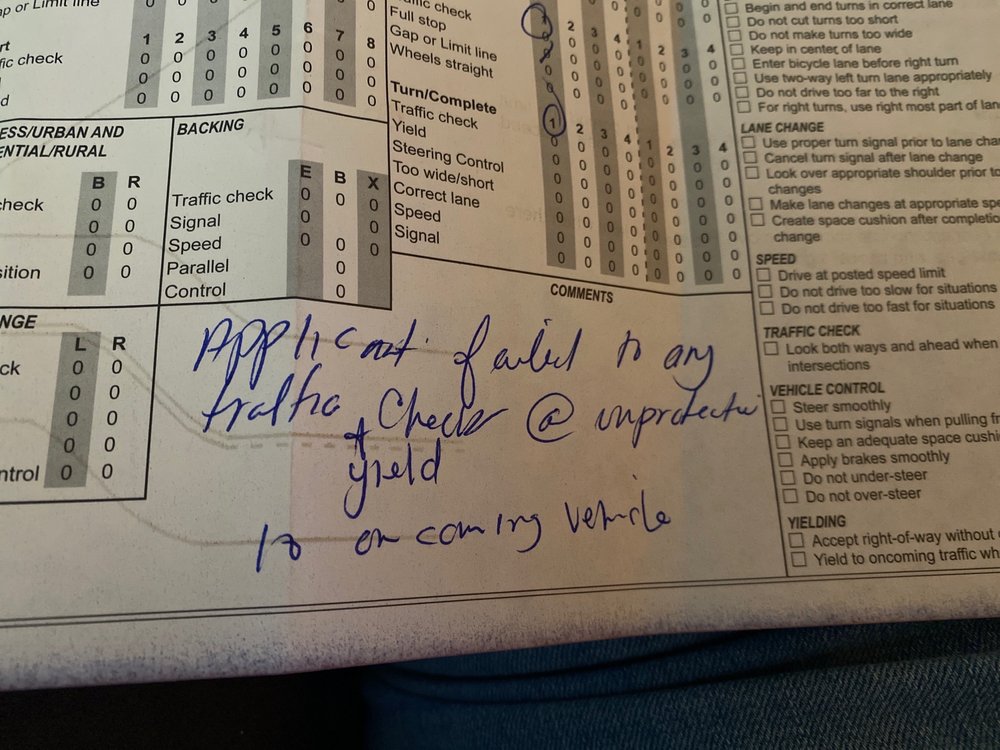 ap or Limit line
fic check
1 2 3 4 5 6 7 8
BACKING
E B X
Traffic check 0 0 0
Signal 0 0
Speed 0 0 0
Parallel 0
Control 0
ESS/URBAN AND
ENTIAL/RURAL
B R
check 0 0
0 0
0 0
sition 0 0
NGE
L R
ck 0 0
0 0
0 0
0 0
ntrol 0 0
ffic check
Full stop
Gap or Limit line
Wheels straight
2 3 4 1 2 3 4
Turn/Complete
Traffic check
Yield
Steering Control
Too wide/short
Correct lane
Speed
Signal
1 2 3 4 1 2 3 4
COMMENTS
Applicant failed to any
traffic Check @
& yield
to oncoming vehicle
Begin and end turns in correct lane
Do not cut turns too short
Do not make turns too wide
Keep in center of lane
Enter bicycle lane before right turn
Use two-way left turn lane appropriately
Do not drive too far to the right
For right turns, use right most part of lan
LANE CHANGE
Use proper turn signal prior to lane cha
Cancel turn signal after lane change
Look over appropriate shoulder prior to
changes
Make lane changes at appropriate spe
Create space cushion after completio
change
SPEED
Drive at posted speed limit
Do not drive too slow for situations
Do not drive too fast for situations
TRAFFIC CHECK
Look both ways and ahead when
intersections
VEHICLE CONTROL
Steer smoothly
Use turn signals when pulling fr
Keep an adequate space cushi
Apply brakes smoothly
Do not under-steer
Do not over-steer
YIELDING
Accept right-of-way without
Yield to oncoming traffic wh